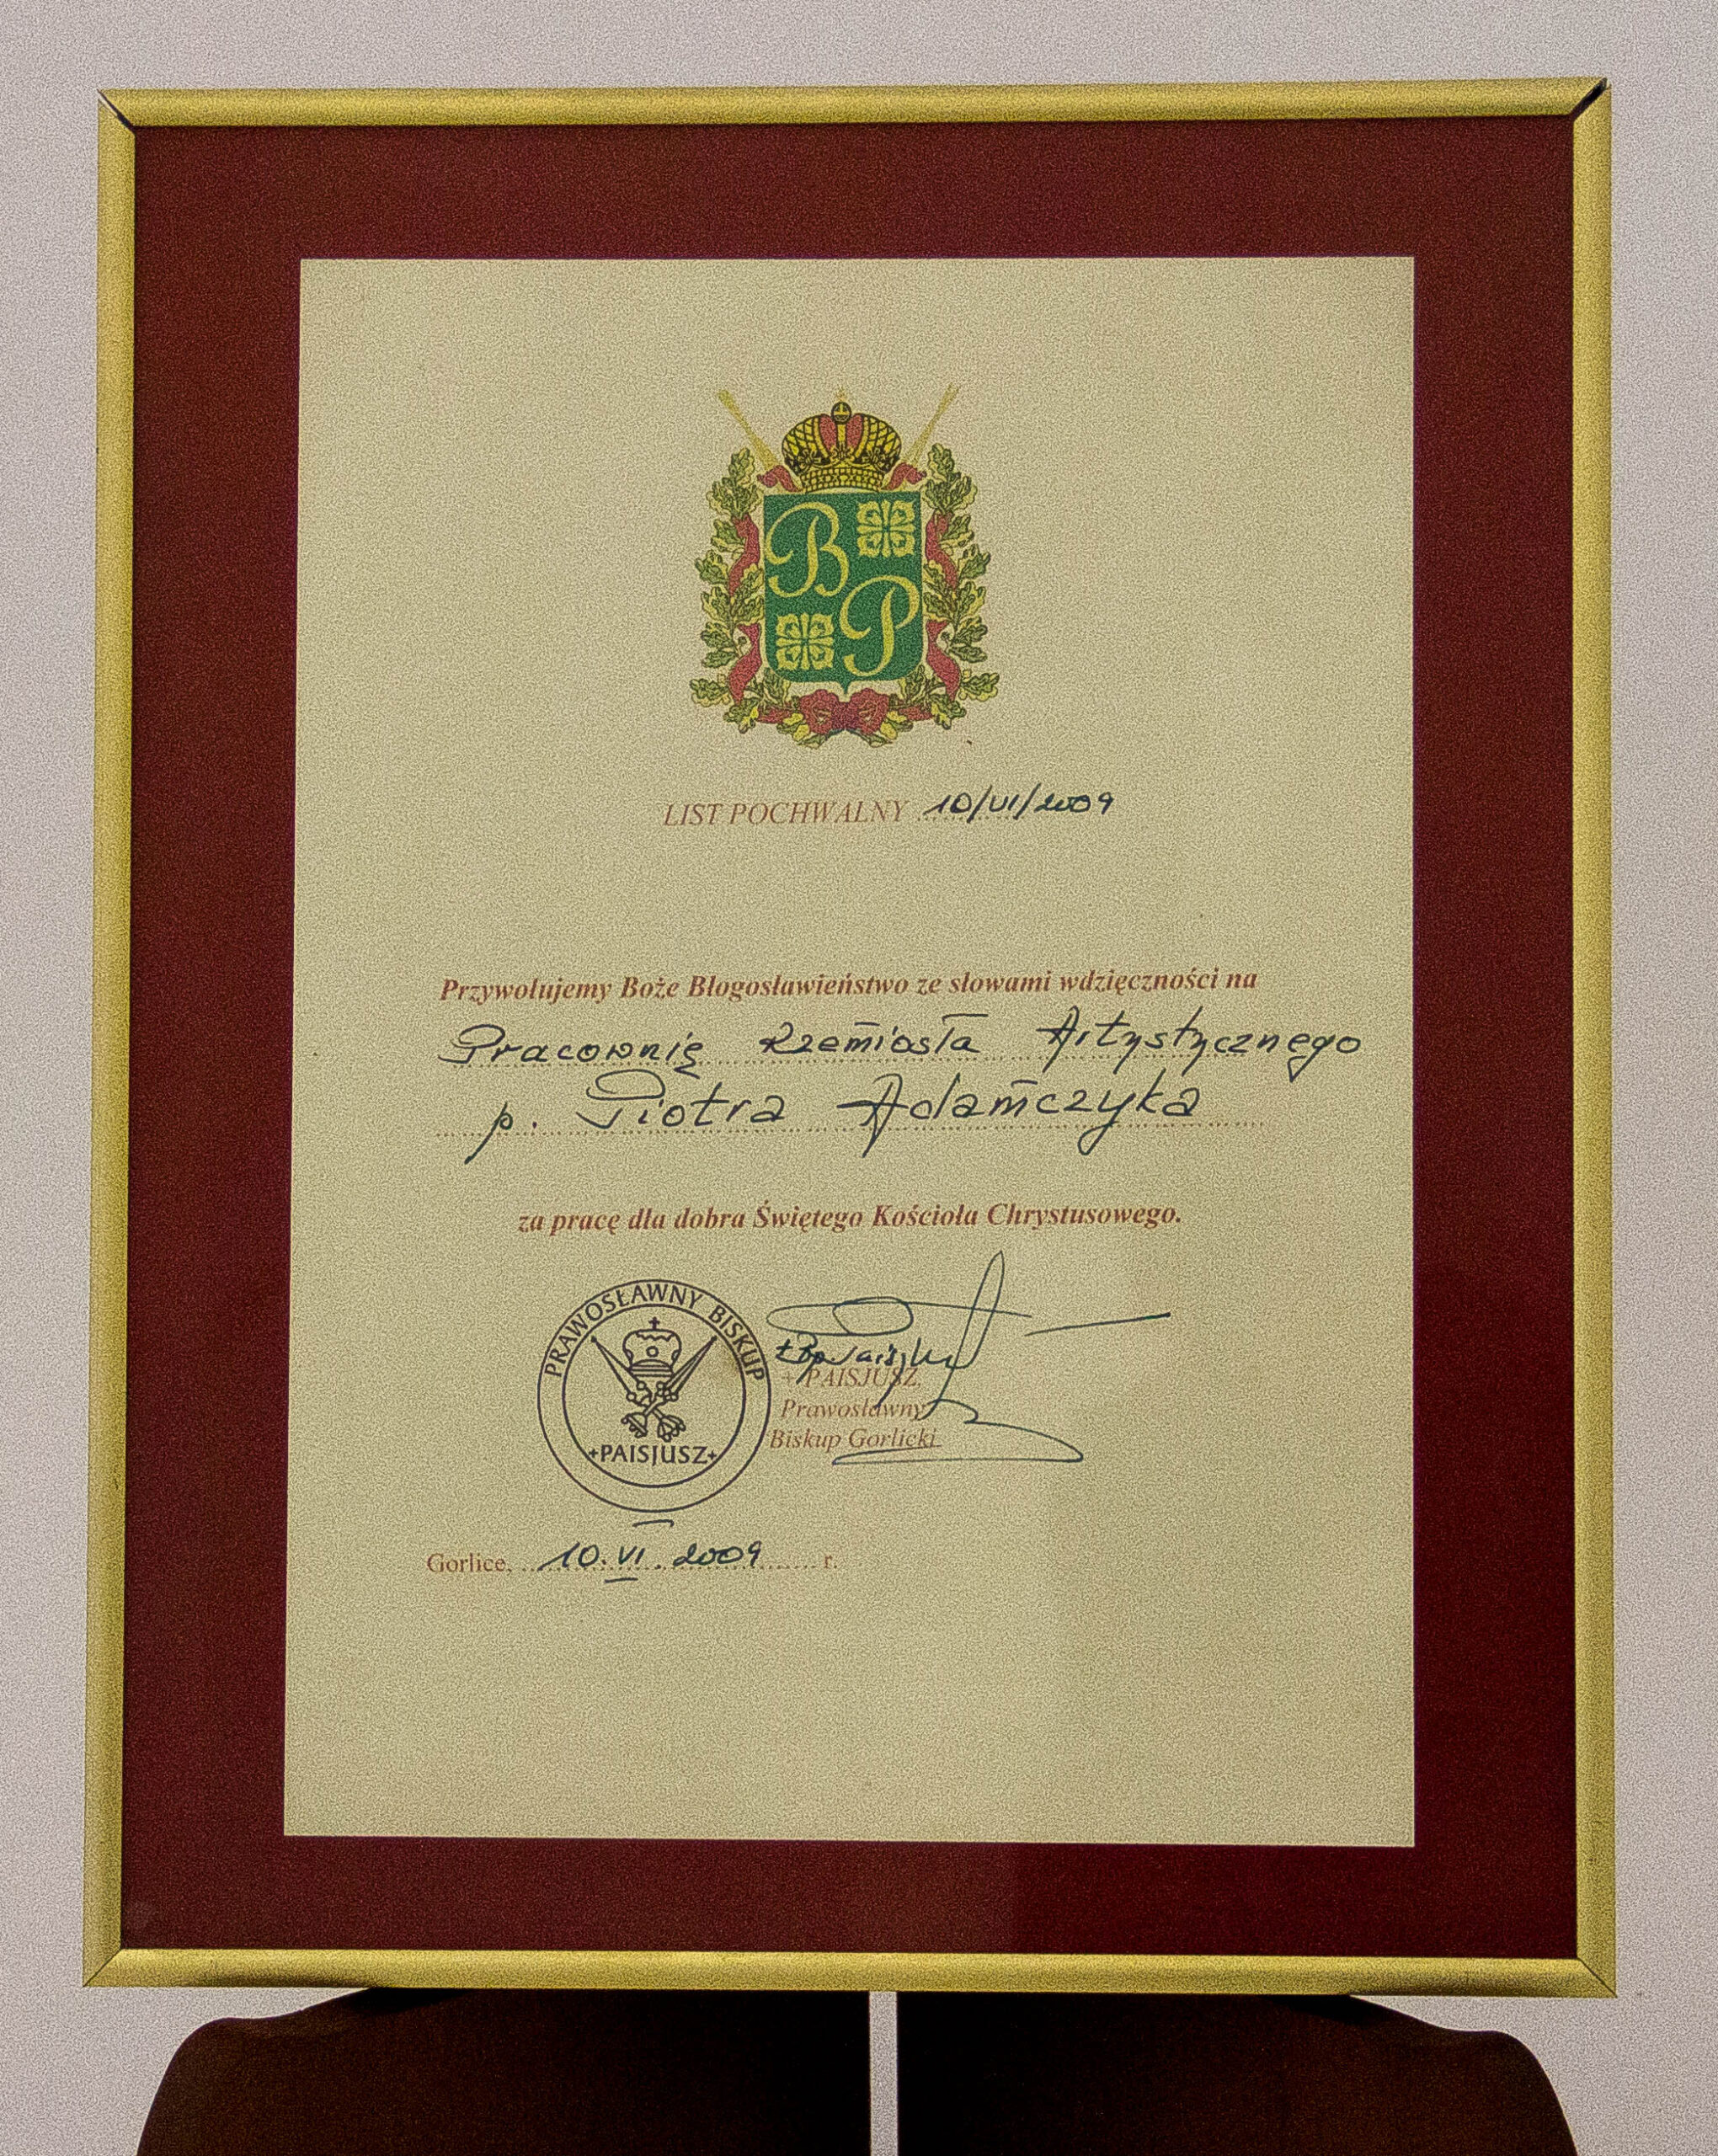 B
P
LIST POCHWALNY 10/VI/2009
Przywołujemy Boże Błogosławieństwo ze słowami wdzięczności na
Pracownię Rzemiosła Artystycznego
p. Piotra Adamczyka
za pracę dla dobra Świętego Kościoła Chrystusowego.
PRAWOSŁAWNY BISKUP
+PAISJUSZ+
+ PAISJUSZ,
Prawosławny
Biskup Gorlicki
Gorlice, 10. VI. 2009 r.